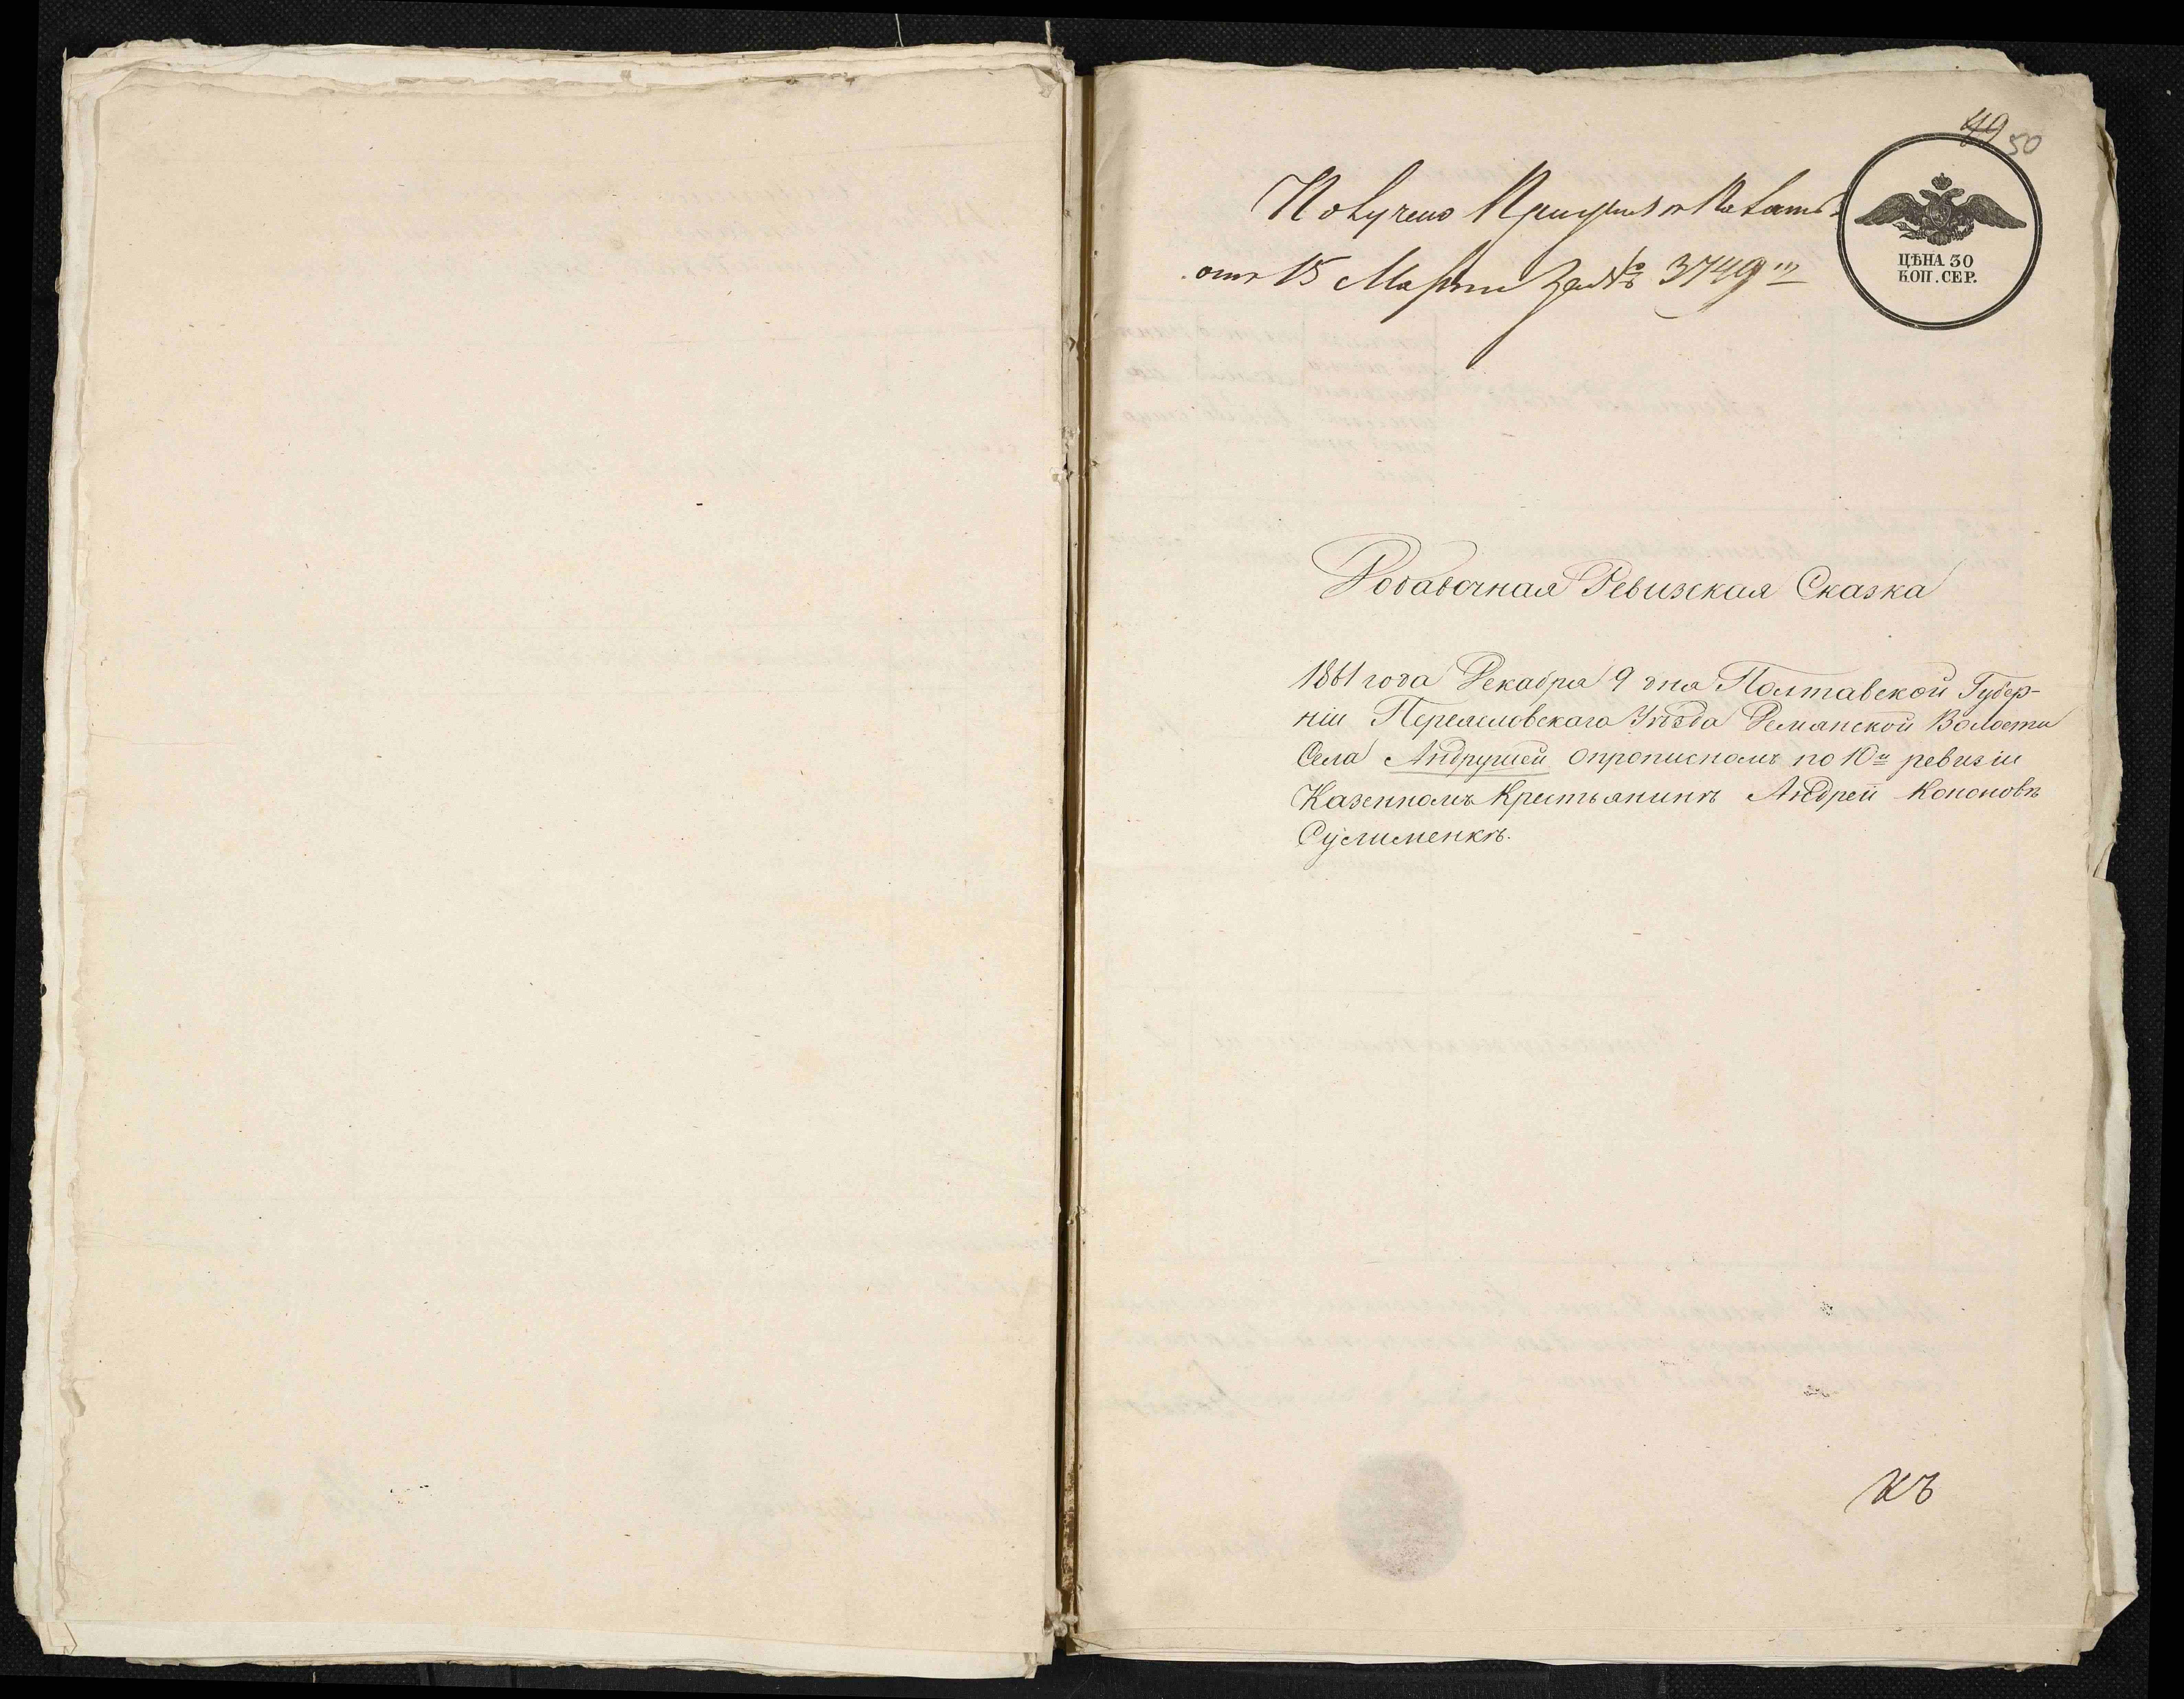 49 50
Получено при указѣ Палаты
отъ 15 Марта за № 3749 м
ЦѢНА 30
КОП. СЕР.
Добавочная Ревизская Сказка
1861 года Декабря 9 дня Полтавской Губер-
ніи Переяславскаго Уѣзда Демянской Волости
Села Андрушей опрописномъ по 10й ревизіи
Казенномъ Крестьянинѣ Андрей Кононовѣ
Сулименкѣ.